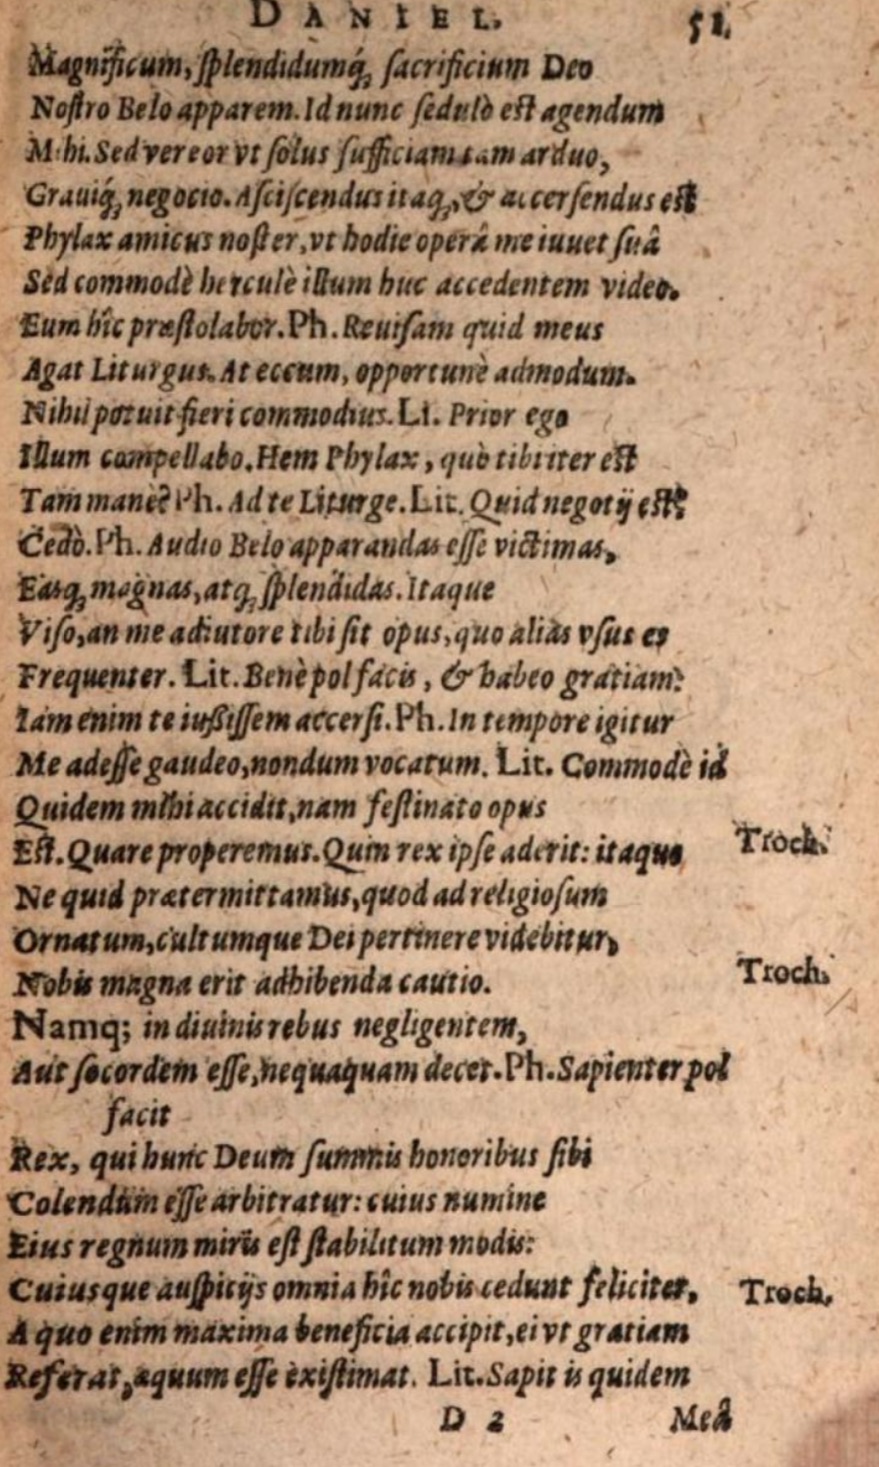 DANIEL. 51.
Magnificum, ſplendidumq́; ſacrificium Deo
Noſtro Belo apparem. Id nunc ſedulò eſt agendum
Mihi. Sed vereor vt ſolus ſufficiam tam arduo,
Grauiq́; negocio. Aſciſcendus itaq;, & accerſendus eſt
Phylax amicus noſter, vt hodie operâ me iuuet ſuâ
Sed commodè herculè illum huc accedentem video.
Eum hîc præſtolabor. Ph. Reuiſam quid meus
Agat Liturgus. At eccum, opportunè admodum.
Nihil potuit fieri commodius. Li. Prior ego
Illum compellabo. Hem Phylax, quò tibi iter eſt
Tam manè? Ph. Ad te Liturge. Lit. Quid negotij eſt?
Cedò. Ph. Audio Belo apparandas eſſe victimas,
Easq; magnas, atq; ſplendidas. Itaque
Viſo, an me adiutore tibi ſit opus, quo aliàs vſus es
Frequenter. Lit. Benè pol facis, & habeo gratiam:
Iam enim te iuſſiſſem accerſi. Ph. In tempore igitur
Me adeſſe gaudeo, nondum vocatum. Lit. Commodè id
Quidem mihi accidit, nam feſtinato opus
Eſt. Quare properemus. Quin rex ipſe aderit: itaque Troch.
Ne quid prætermittamus, quod ad religioſum
Ornatum, cultumque Dei pertinere videbitur,
Nobis magna erit adhibenda cautio. Troch.
Namq; in diuinis rebus negligentem,
Aut ſocordem eſſe, nequaquam decet. Ph. Sapienter pol
facit
Rex, qui hunc Deum ſummis honoribus ſibi
Colendum eſſe arbitratur: cuius numine
Eius regnum miris eſt ſtabilitum modis:
Cuiusque auſpicijs omnia hîc nobis cedunt feliciter, Troch.
A quo enim maxima beneficia accipit, ei vt gratiam
Referat, æquum eſſe exiſtimat. Lit. Sapit is quidem
D 2 Meâ